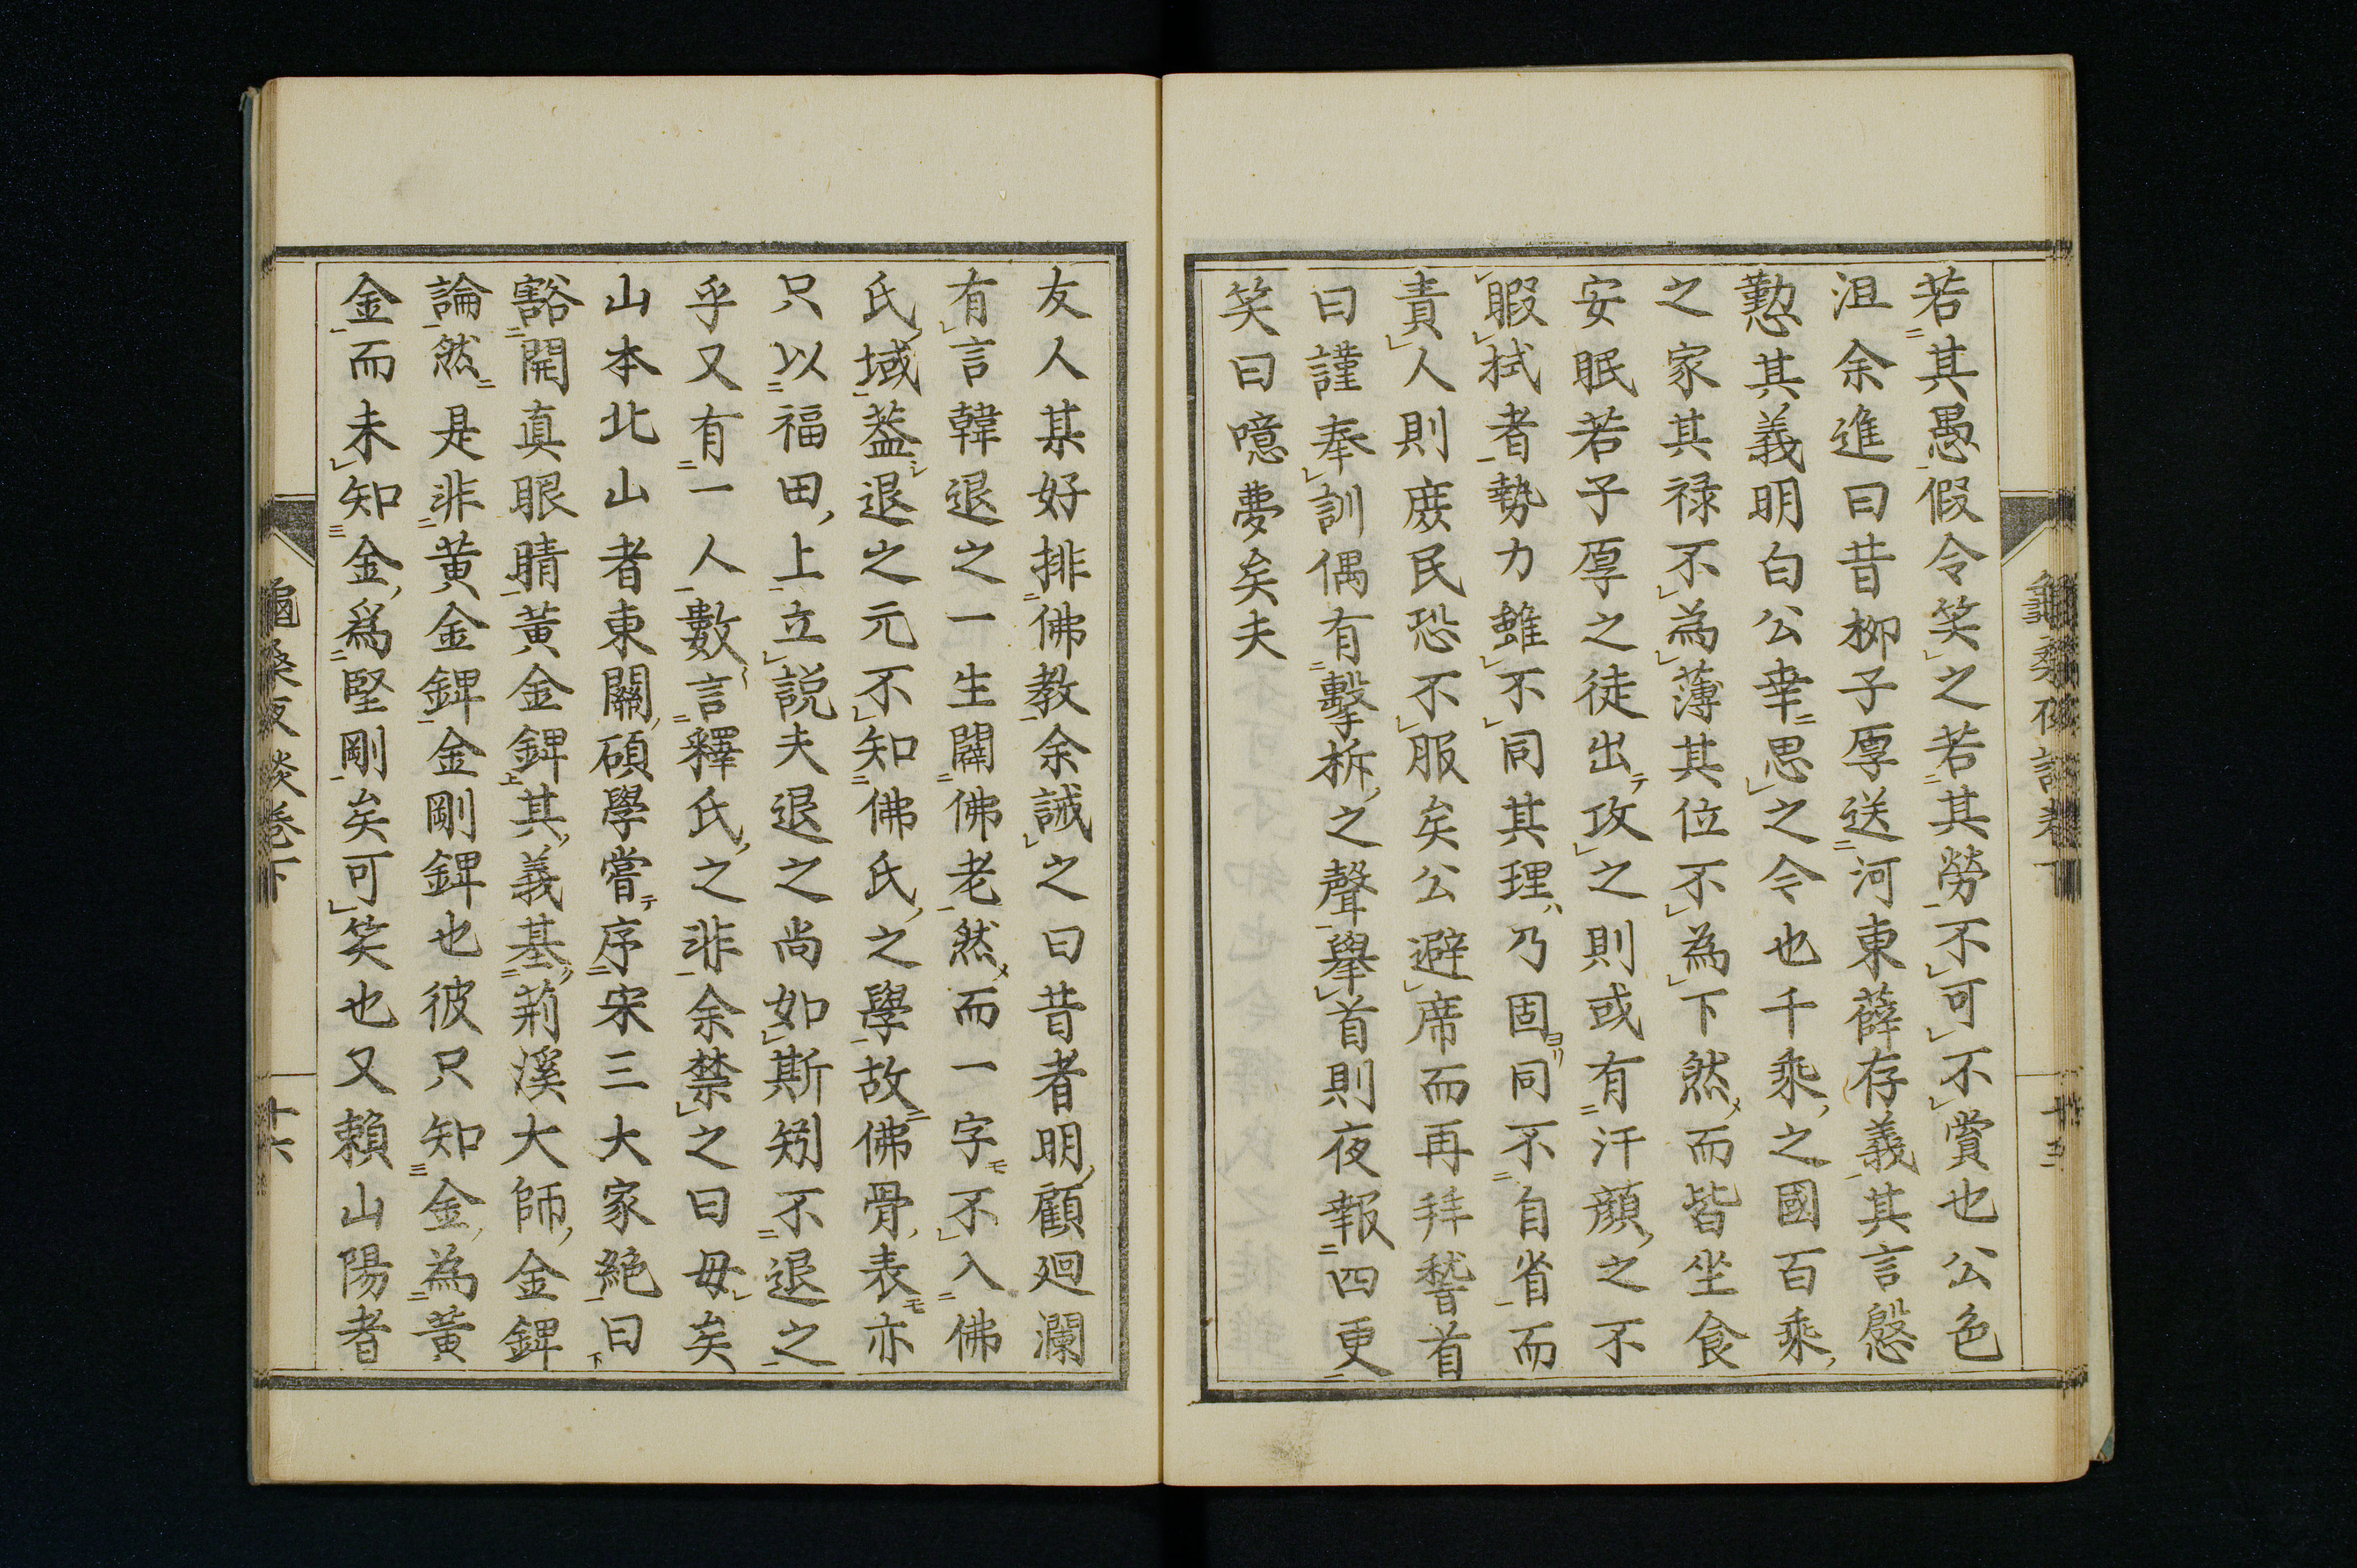 若其愚假令笑之若其勞不可不賞也公色
沮余進曰昔柳子厚送河東薛存義其言慇
懃其義明白公幸思之令也千乘之國百乘
之家其祿不為薄其位不為下然而皆坐食
安眠若子厚之徒出攻之則或有汗顏之不
暇拭者勢力雖不同其理乃固同不自省而
責人則庶民恐不服矣公避席而再拜稽首
曰謹奉訓偶有擊柝之聲舉首則夜報四更
笑曰噫夢矣夫
友人某好排佛教余誡之曰昔者明顧廻瀾
有言韓退之一生闢佛老然而一字不入佛
氏域蓋退之元不知佛氏之學故佛骨表亦
只以福田上立說夫退之尚如斯矧不退之
乎又有一人數言釋氏之非余禁之曰毋矣
山本北山者東關碩學嘗序宋三大家絕曰
豁開真眼睛黃金錍其義基荊溪大師金錍
論然是非黃金錍金剛錍也彼只知金為黃
金而未知金為堅剛矣可笑也又賴山陽者
卷下
十六